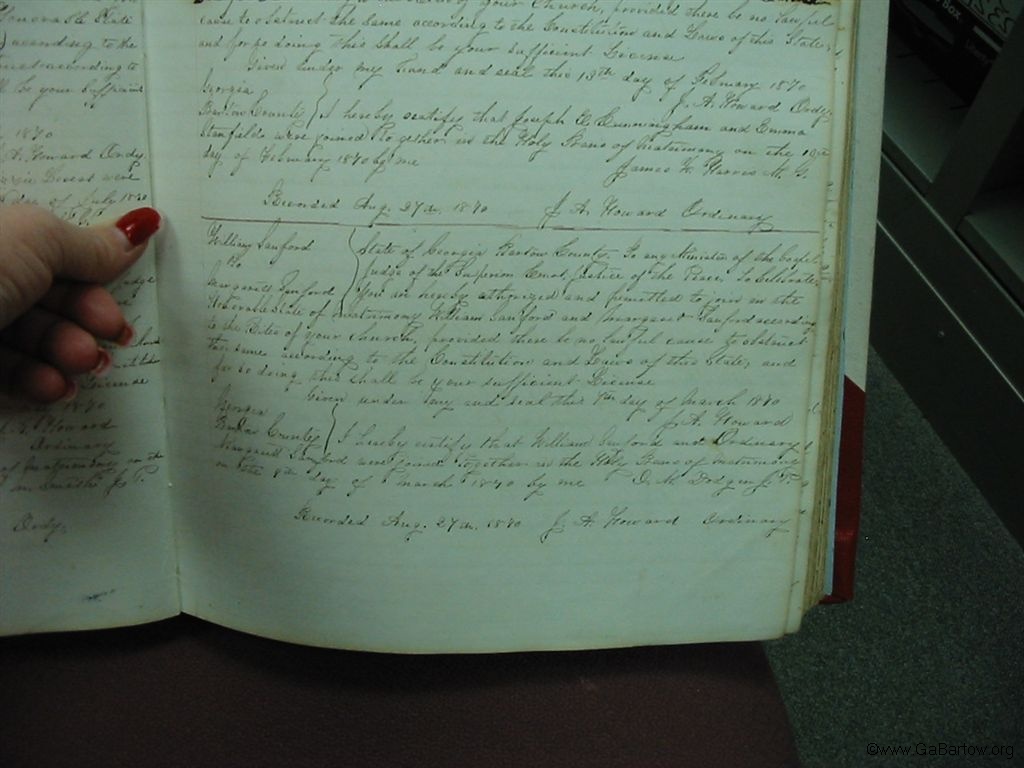 Honorable State
according to the
according to
ll be your sufficient
1870
A. Howard Ordy.
were
day of July 1870
License
1870
Howard
Ordinary
of matrimony on the
Smith J. P.
Ordy.
of your Church, provided there be no lawful
cause to obstruct the same according to the Constitution and Laws of this State,
and for so doing this shall be your sufficient License
Given under my hand and seal this 18th day of February 1870
Georgia J. A. Howard Ordy.
Bartow County } I hereby certify that Joseph E. Cunningham and Emma
Stanfield were joined together in the Holy Bans of Matrimony on the
day of February 1870 by me James H. Harris M. G.
Recorded Aug. 27th. 1870 J. A. Howard Ordinary
William Sanford State of Georgia Bartow County. To any Minister of the Gospel,
To Judge of the Superior Court, Justice of the Peace, To Celebrate,
Margaret Sanford You are hereby authorized and permitted to join in the
Honorable State of matrimony William Sanford and Margaret Sanford according
to the Rites of your Church, provided there be no lawful cause to obstruct
the same according to the Constitution and Laws of this State, and
for so doing this shall be your sufficient License
Given under my and seal this 7th day of March 1870
Georgia J. A. Howard
Bartow County } I hereby certify that William Sanford and Ordinary
Margaret Sanford were joined together in the Holy Bans of matrimony
on the 9th day of March 1870 by me D. M. Dodgen J. P.
Recorded Aug. 27th. 1870 J. A. Howard Ordinary
Box
©www.GaBartow.org